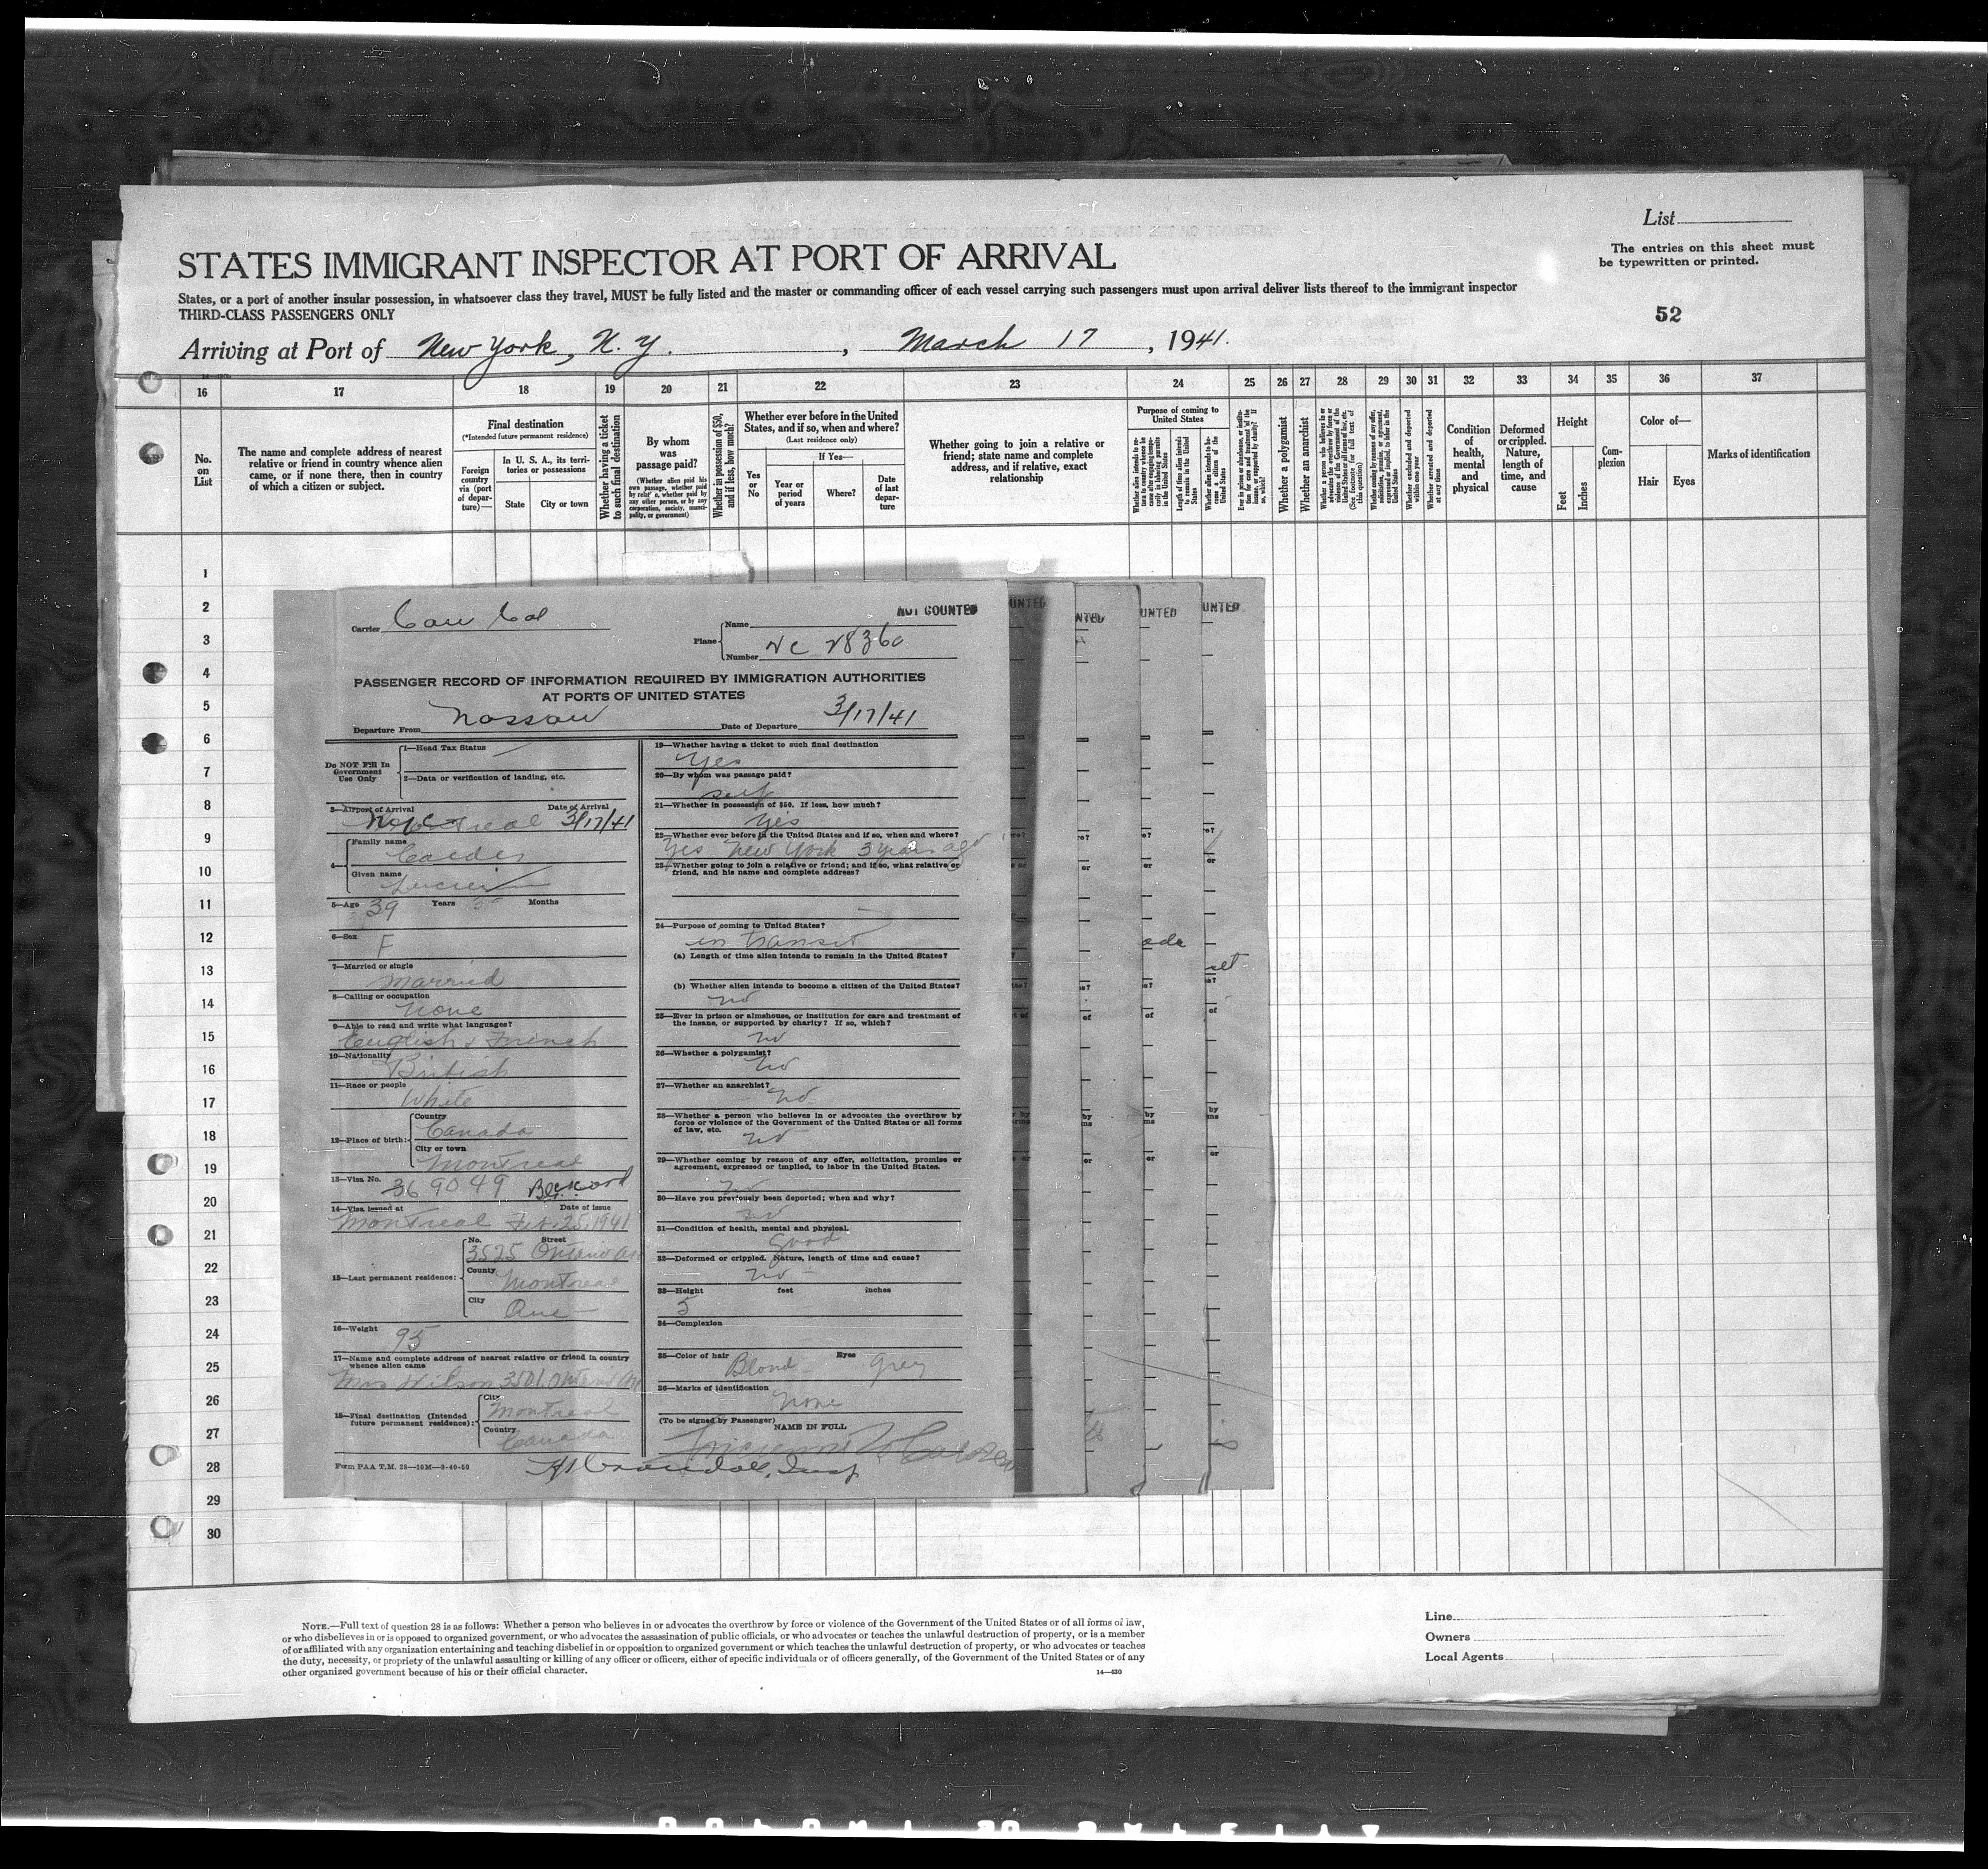 List
The entries on this sheet must
be typewritten or printed.
STATES IMMIGRANT INSPECTOR AT PORT OF ARRIVAL
States, or a port of another insular possession, in whatsoever class they travel, MUST be fully listed and the master or commanding officer of each vessel carrying such passengers must upon arrival deliver lists thereof to the immigrant inspector
THIRD-CLASS PASSENGERS ONLY
52
Arriving at Port of New York, N. Y. , March 17 , 1941.
16 17 18 19 20 21 22 23 24 25 26 27 28 29 30 31 32 33 34 35 36 37
No.
on
List
The name and complete address of nearest
relative or friend in country whence alien
came, or if none there, then in country
of which a citizen or subject.
Final destination
(*Intended future permanent residence)
Foreign
country
via (port
of depar-
ture)—
In U. S. A., its terri-
tories or possessions
State
City or town
Whether having a ticket
to such final destination
By whom
was
passage paid?
(Whether alien paid his
own passage, whether paid
by relative, whether paid by
any other person, or by any
corporation, society, munici-
pality, or government)
Whether in possession of $50,
and if less, how much?
Whether ever before in the United
States, and if so, when and where?
(Last residence only)
Yes
or
No
If Yes—
Year or
period
of years
Where?
Date
of last
depar-
ture
Whether going to join a relative or
friend; state name and complete
address, and if relative, exact
relationship
Purpose of coming to
United States
Whether a polygamist
Whether an anarchist
Whether excluded and deported
within one year
Whether arrested and deported
at any time
Condition
of
health,
mental
and
physical
Deformed
or crippled.
Nature,
length of
time, and
cause
Height
Feet
Inches
Com-
plexion
Color of—
Hair
Eyes
Marks of identification
1
2
3
4
5
6
7
8
9
10
11
12
13
14
15
16
17
18
19
20
21
22
23
24
25
26
27
28
29
30
NOT COUNTED
Carrier
Plane
Name
Number NC 28360
PASSENGER RECORD OF INFORMATION REQUIRED BY IMMIGRATION AUTHORITIES
AT PORTS OF UNITED STATES
Departure From Nassau Date of Departure 3/17/41
Do NOT Fill In
Government
Use Only
1—Head Tax Status
2—Data or verification of landing, etc.
3—Airport of Arrival Date of Arrival
3/17/41
4— Family name
Given name
5—Age 39 Years Months
6—Sex
F
7—Married or single
Married
8—Calling or occupation
none
9—Able to read and write what languages?
English & French
10—Nationality
British
11—Race or people
White
12—Place of birth:
Country
Canada
City or town
Montreal
13—Visa No. 369049
14—Visa issued at Date of issue
Montreal Feb. 25, 1941
15—Last permanent residence:
No. Street
3525 Ontario
County
Montreal
City
Que
16—Weight
95
17—Name and complete address of nearest relative or friend in country
whence alien came
Mrs Wilson 3501 Ontario
18—Final destination (Intended
future permanent residence):
City
Montreal
Country
Canada
Form PAA T.M. 28—10M—9-40-50
19—Whether having a ticket to such final destination
Yes
20—By whom was passage paid?
self
21—Whether in possession of $50. If less, how much?
Yes
22—Whether ever before in the United States and if so, when and where?
Yes New York 3 years ago
23—Whether going to join a relative or friend; and if so, what relative or
friend, and his name and complete address?
24—Purpose of coming to United States?
in transit
(a) Length of time alien intends to remain in the United States?
(b) Whether alien intends to become a citizen of the United States?
no
25—Ever in prison or almshouse, or institution for care and treatment of
the insane, or supported by charity? If so, which?
no
26—Whether a polygamist?
no
27—Whether an anarchist?
no
28—Whether a person who believes in or advocates the overthrow by
force or violence of the Government of the United States or all forms
of law, etc.
no
29—Whether coming by reason of any offer, solicitation, promise or
agreement, expressed or implied, to labor in the United States.
no
30—Have you previously been deported; when and why?
no
31—Condition of health, mental and physical.
good
32—Deformed or crippled. Nature, length of time and cause?
no
33—Height feet inches
5
34—Complexion
35—Color of hair Eyes
Blond grey
36—Marks of identification
none
(To be signed by Passenger)
NAME IN FULL
NOTE.—Full text of question 28 is as follows: Whether a person who believes in or advocates the overthrow by force or violence of the Government of the United States or of all forms of law,
or who disbelieves in or is opposed to organized government, or who advocates the assassination of public officials, or who advocates or teaches the unlawful destruction of property, or is a member
of or affiliated with any organization entertaining and teaching disbelief in or opposition to organized government or which teaches the unlawful destruction of property, or who advocates or teaches
the duty, necessity, or propriety of the unlawful assaulting or killing of any officer or officers, either of specific individuals or of officers generally, of the Government of the United States or of any
other organized government because of his or their official character.
14—430
Line
Owners
Local Agents